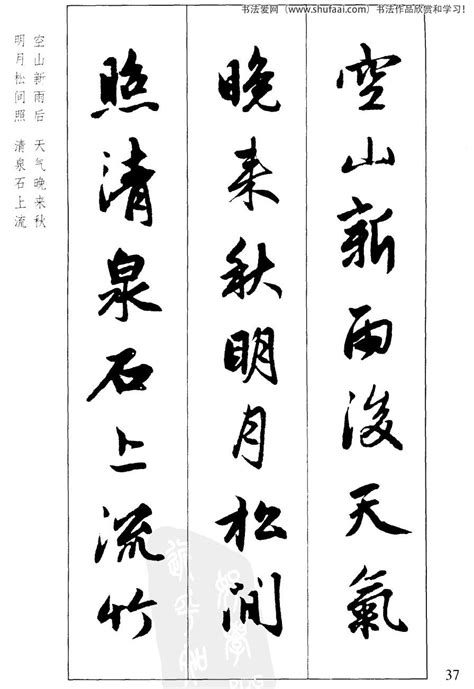 书法爱网（www.shufaai.com）书法作品欣赏和学习！
空山新雨後天氣
晚来秋明月松間
照清泉石上流竹
空山新雨后 天气晚来秋
明月松间照 清泉石上流
37